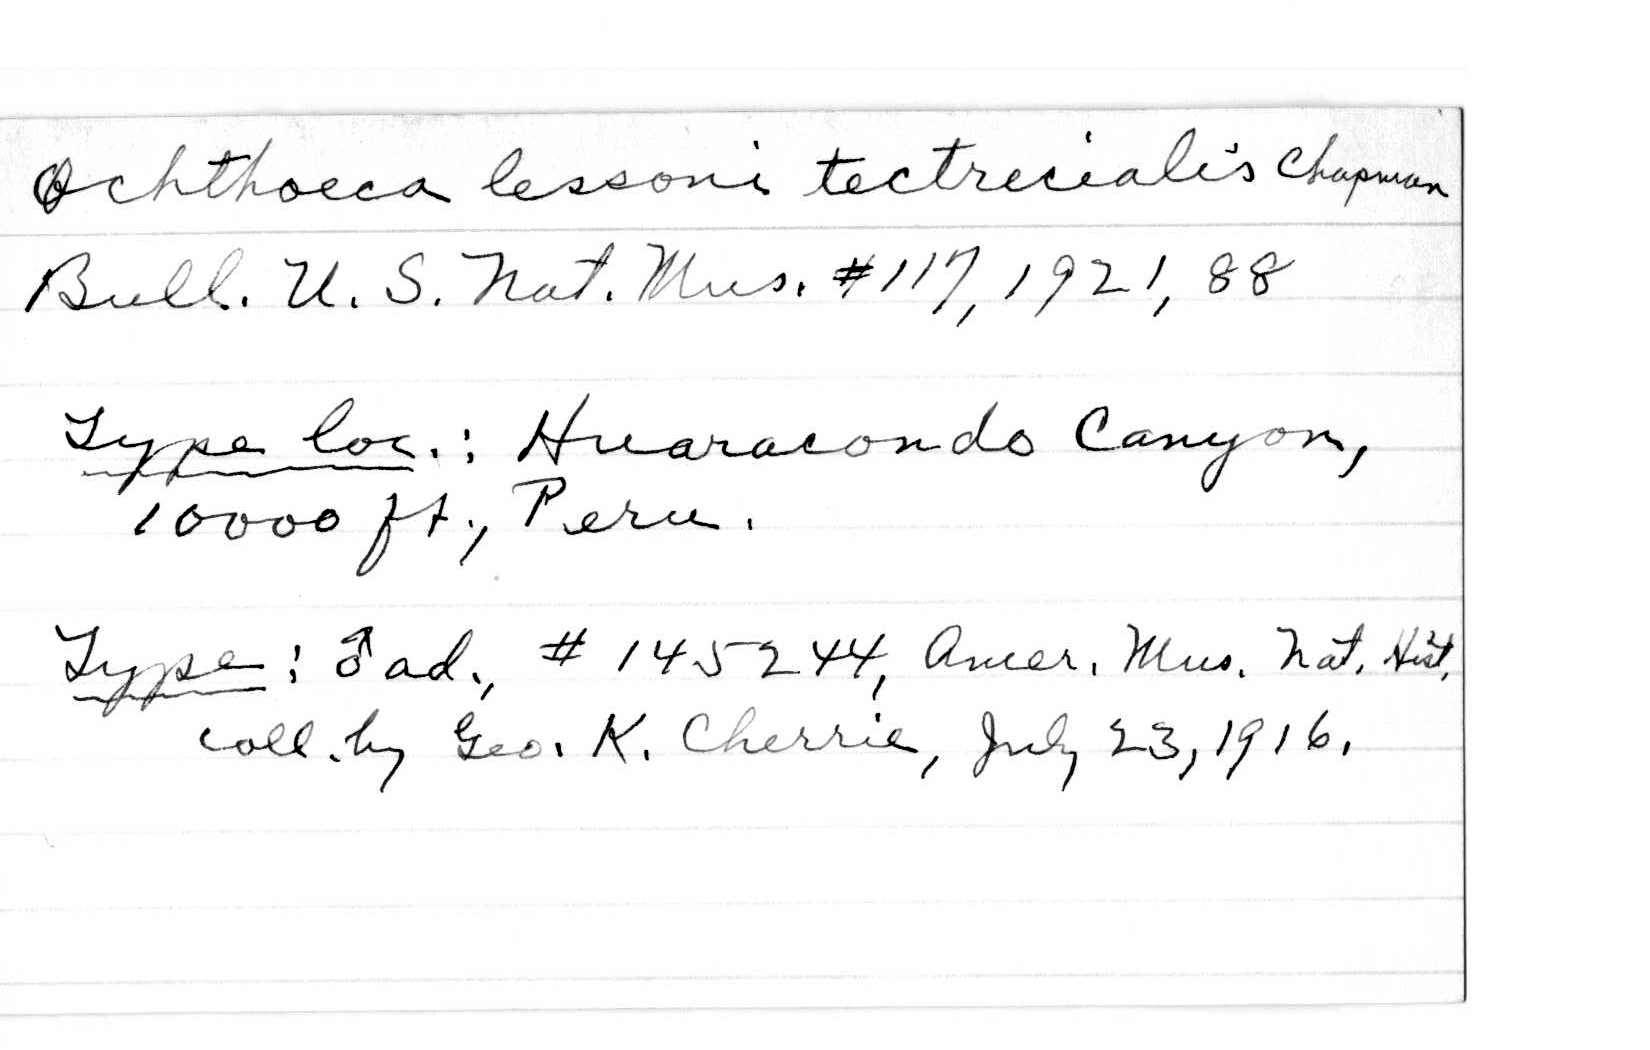 Ochthoeca lessoni tectricialis Chapman
Bull. U. S. Nat. Mus. #117, 1921, 88
Type loc.: Huaracondo Canyon,
10000 ft., Peru.
Type: ♂ ad., # 145244, Amer. Mus. Nat. Hist.
coll. by Geo. K. Cherrie, July 23, 1916.